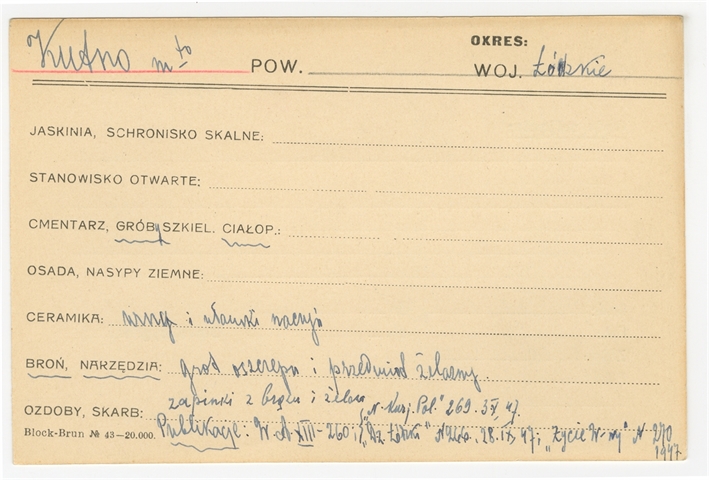 OKRES:
Kutno m-to POW. WOJ. Łódzkie
JASKINIA, SCHRONISKO SKALNE:
STANOWISKO OTWARTE:
CMENTARZ, GRÓBy SZKIEL. CIAŁOP.:
OSADA, NASYPY ZIEMNE:
CERAMIKA: urny i ułamki naczyń
BROŃ, NARZĘDZIA: grot oszczepu i przedmiot żelazny.
OZDOBY, SKARB: zapinki z brązu i żelaza
„N. Kurj. Pol." 269. 3 X, 47.
Block-Brun № 43–20.000. Publikacje. W. A XIII–260; „Dz. Łódzki" N 266. 28.IX.47; „Życie W-wy" N 270
1947